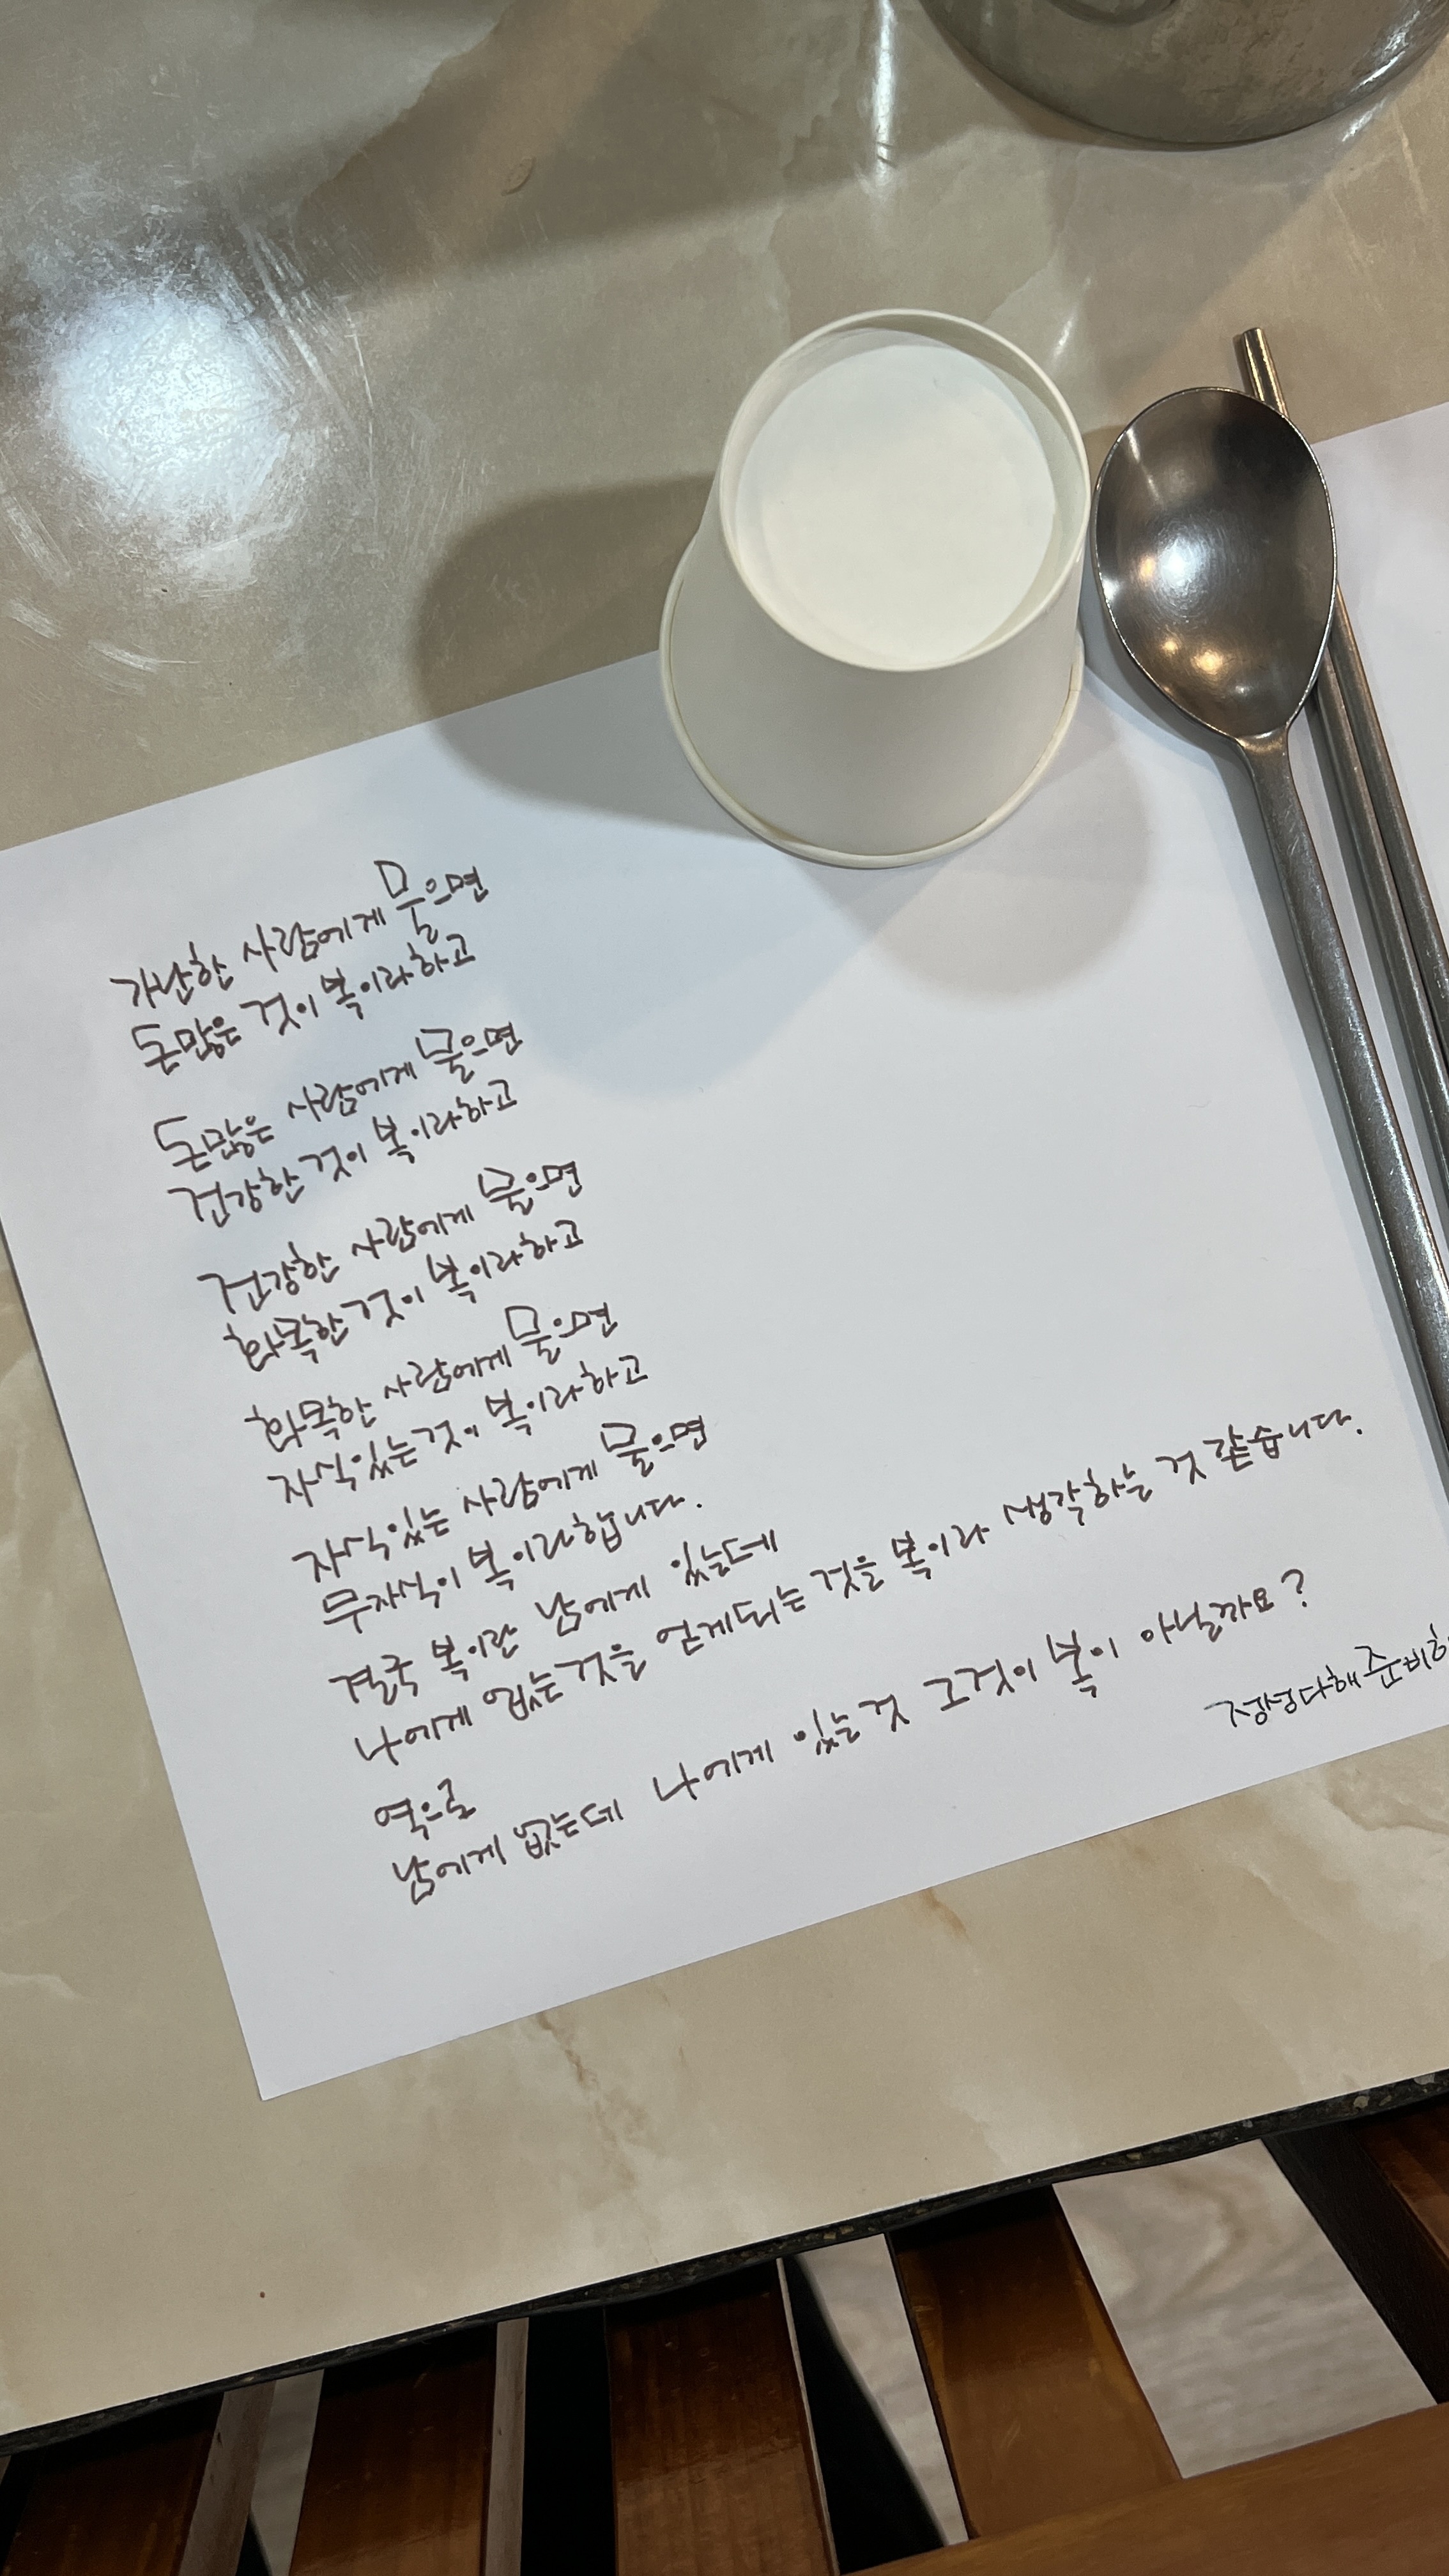 가난한 사람에게 물으면
돈많은 것이 복이라하고
돈많은 사람에게 물으면
건강한 것이 복이라하고
건강한 사람에게 물으면
화목한 것이 복이라하고
화목한 사람에게 물으면
자식있는것이 복이라하고
자식있는 사람에게 물으면
무자식이 복이라합니다.
결국 복이란 남에게 있는데
나에게 없는것을 얻게되는 것을 복이라 생각하는 것 같습니다.
역으로
남에게 없는데 나에게 있는것 그것이 복이 아닐까요?
정성다해 준비하